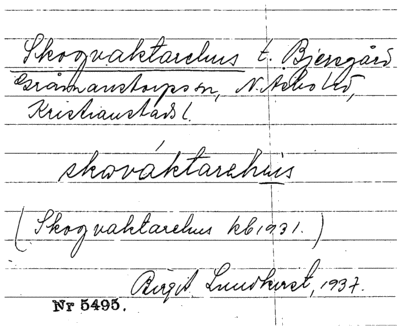 Skogvaktarehus t. Bjersgård
Gråmanstorps sn, N. Åsbo hd,
Kristianstads l.
skováktarehuis
(Skogvaktarehus kb 1931.)
Birgit Lundkvist, 1937.
Nr 5495.